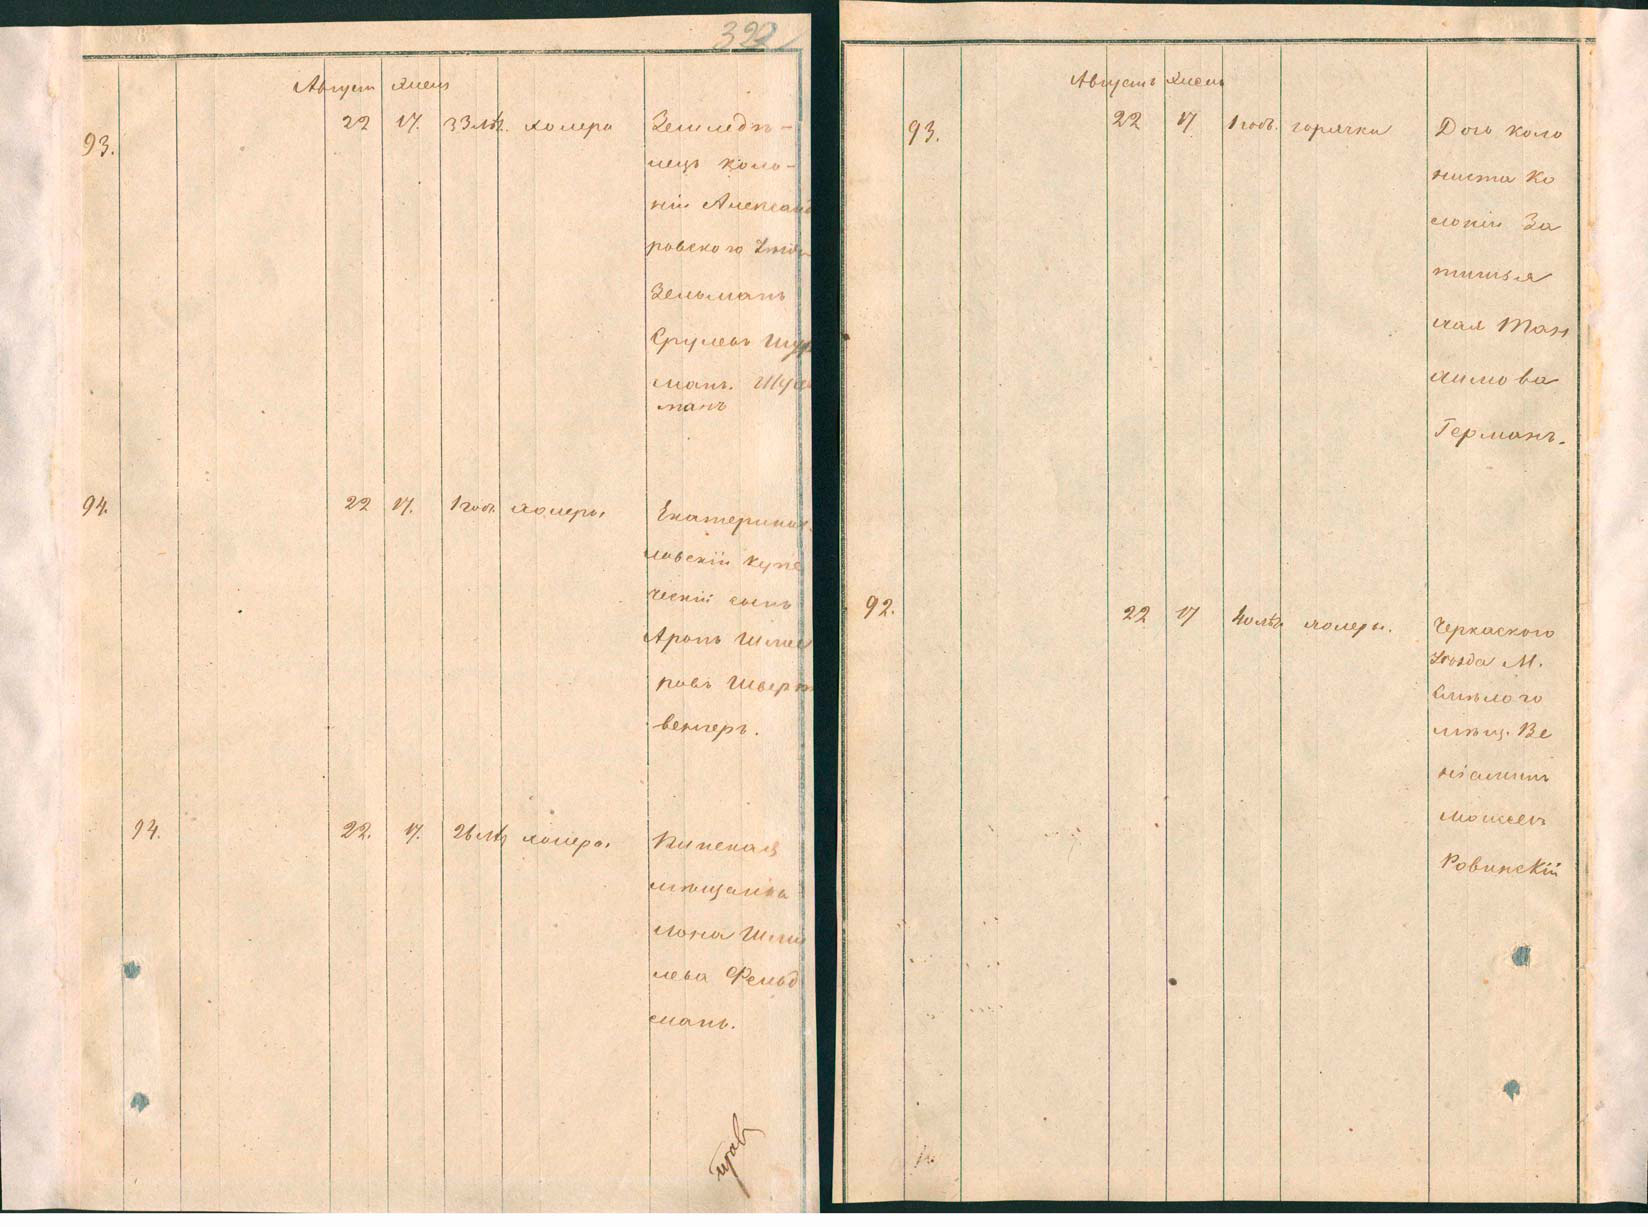 322
Августъ Хисень
93. 22 17. 33 лѣт. холера Земледѣ-
лецъ коло-
ніи Александ
ровского уѣзд
Зельманъ
Срулевъ Шух
манъ. Шух
манъ
94. 22 17. 1 годъ холеры Екатеринос
лавскій купе
ческій сынъ
Аронъ Шлее
новъ
венгеръ.
94. 22. 17. 26 лѣт холеры
мѣщанка
Шми
лева Фельд
манъ.
Августъ
93. 22 17 1 годъ. горячки Дочь коло
ниста Ко
лоніи За
тишья
Хая
химова
Германъ.
92. 22 17 40 лѣт холеры. Черкаского
уѣзда М.
Смѣлого
мѣщ. Ве
ніаминъ
Мошеевъ
Ровинскій